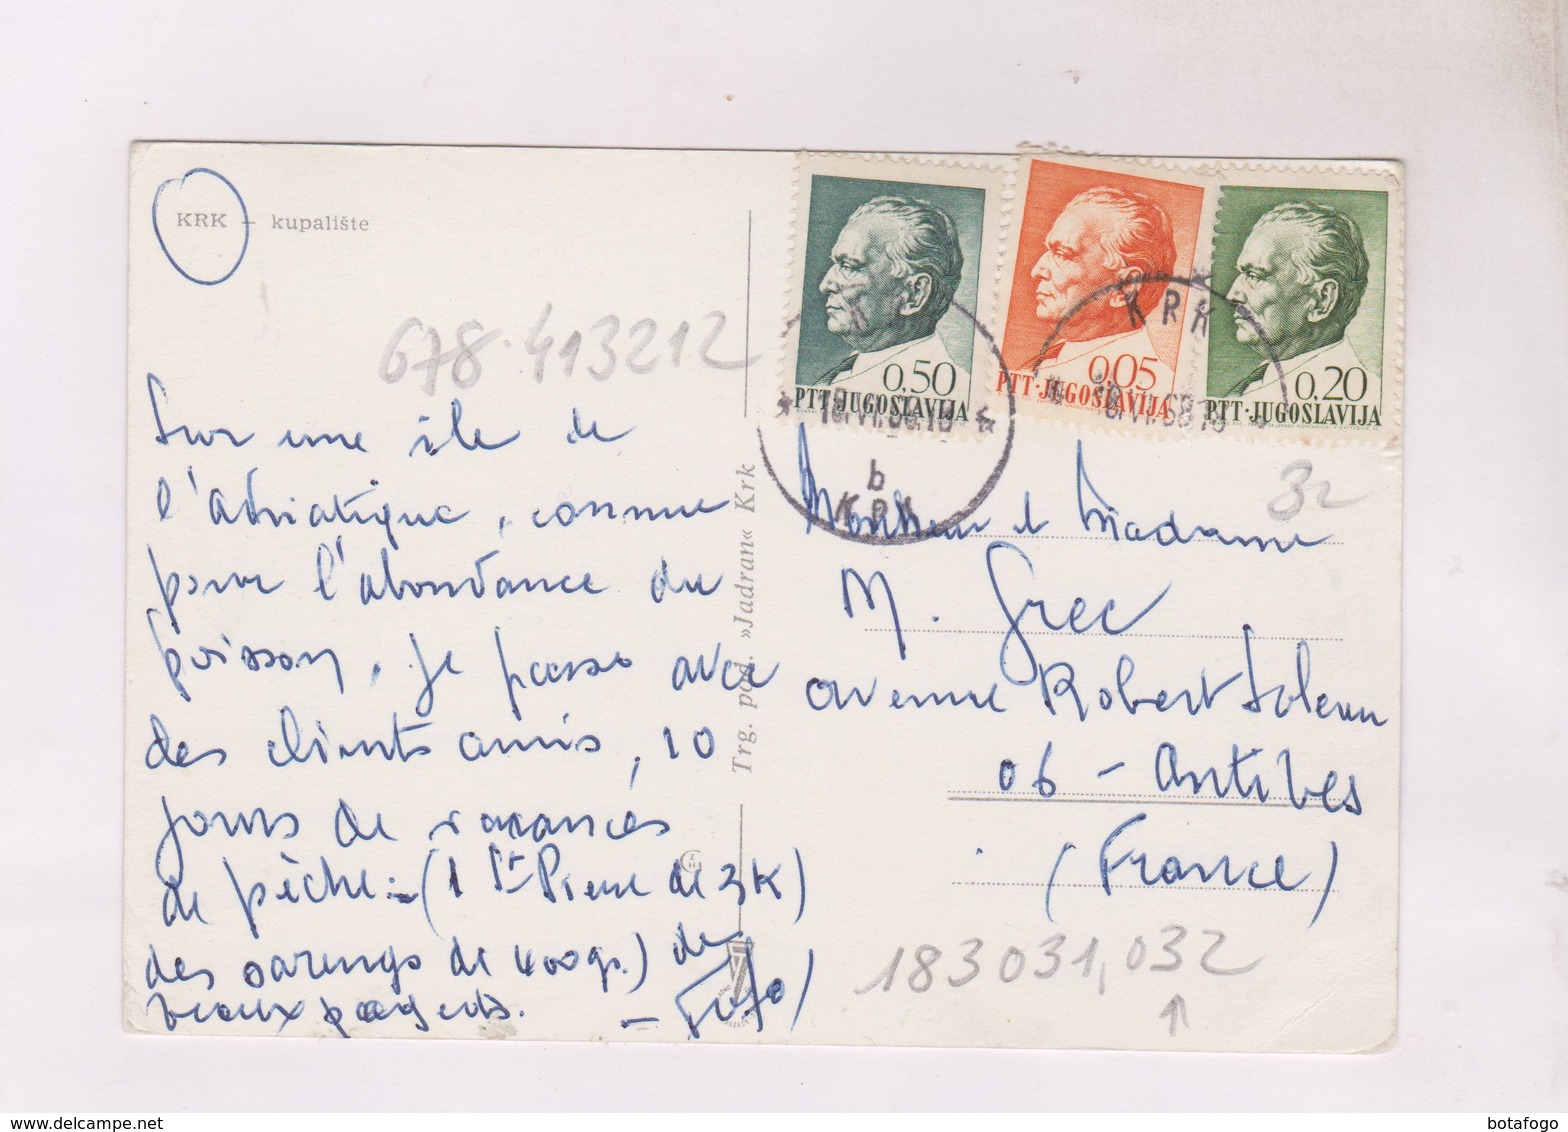 KRK - kupalište
678.413212
Sur une île de
l'adriatique, connue
pour l'abondance du
poisson, je passe avec
des clients amis, 10
jours de vacances
de pêche - (1 St Pierre de 3K)
des harengs de 400gs.) de
beaux pagets.
Trg. pod. »Jadran« Krk
0,50
PTT·JUGOSLAVIJA
0,05
PTT·JUGOSLAVIJA
0,20
PTT·JUGOSLAVIJA
KRK
b
KRK
32
Monsieur et Madame
M. Grec
avenue Robert Soleau
06 - Antibes
(France)
183031,032
botafogo